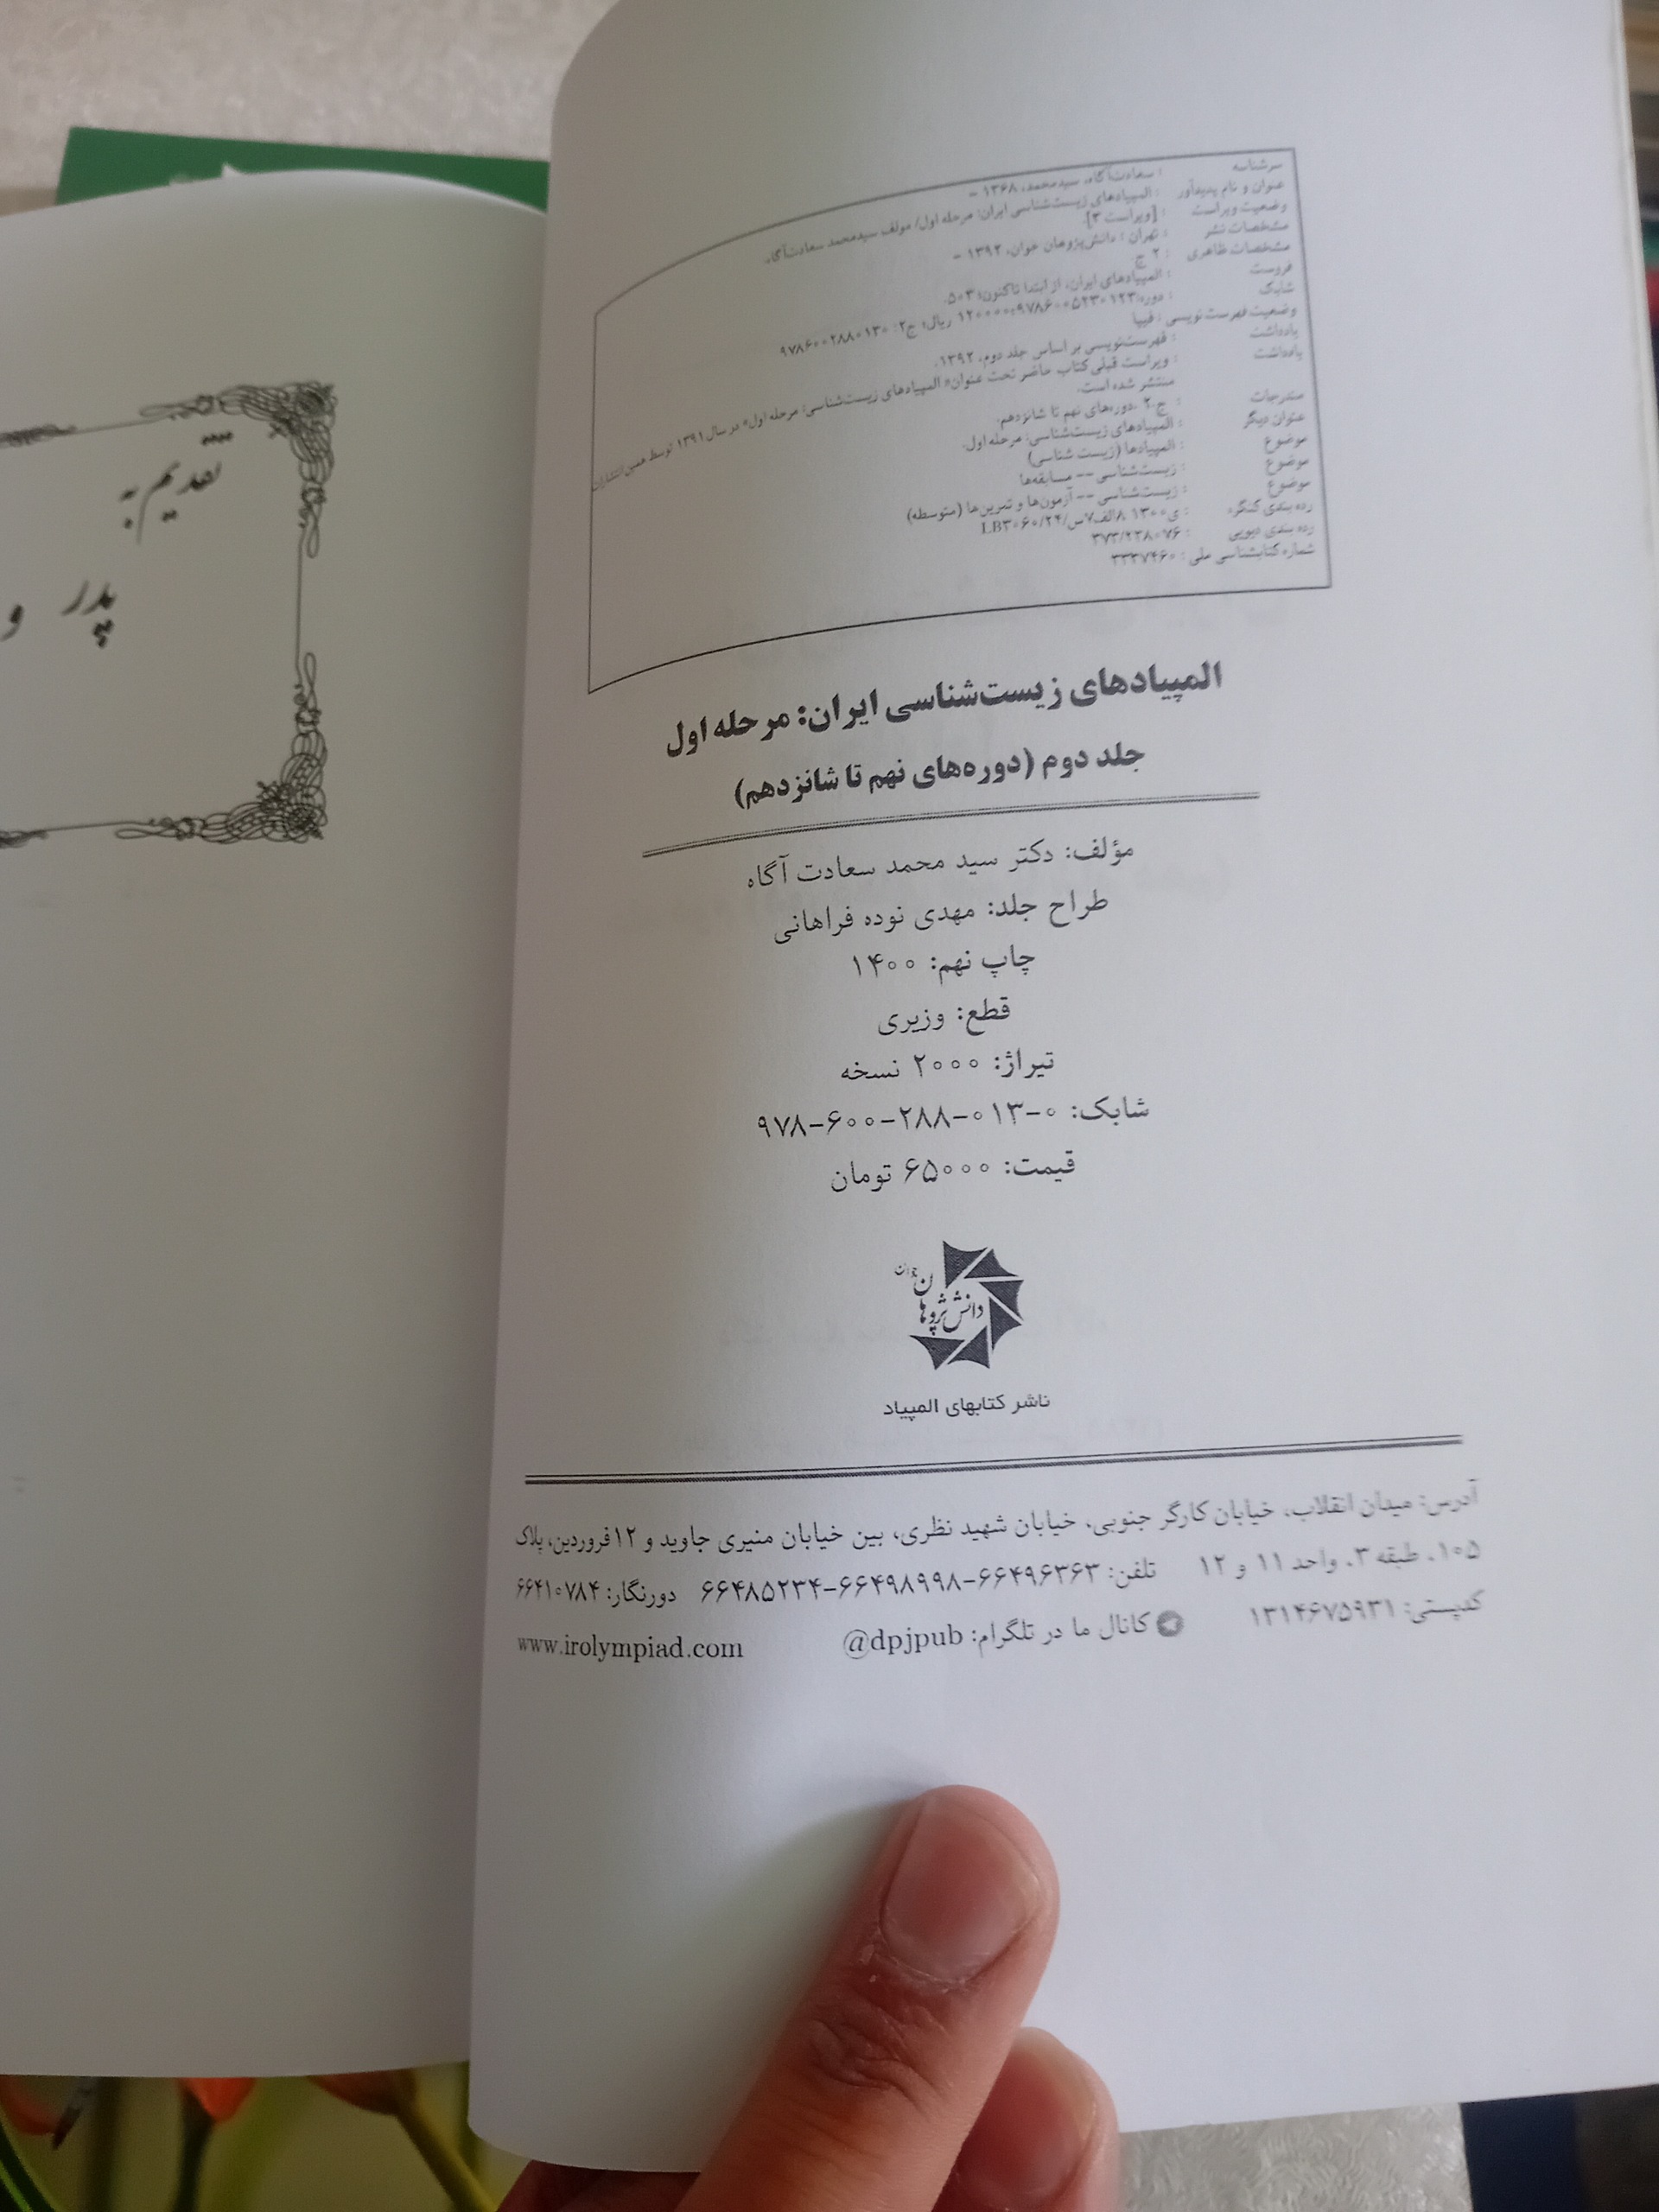 تقدیم به
پدر و
سرشناسه : سعادت‌آگاه، سیدمحمد، ۱۳۶۸ -
عنوان و نام پدیدآور : المپیادهای زیست‌شناسی ایران: مرحله اول/ مولف سیدمحمد سعادت‌آگاه.
وضعیت ویراست : [ویراست ۳].
مشخصات نشر : تهران : دانش‌پژوهان جوان، ۱۳۹۲ -
مشخصات ظاهری : ۲ ج.
فروست : المپیادهای ایران، از ابتدا تاکنون؛ ۵۰۳.
شابک : دوره: ۹۷۸۶۰۰۵۲۳۰۱۲۳؛ ۱۲۰۰۰۰ ریال؛ ج۲: ۹۷۸۶۰۰۲۸۸۰۱۳۰
وضعیت فهرست نویسی : فیپا
یادداشت : فهرست‌نویسی بر اساس جلد دوم، ۱۳۹۲.
یادداشت : ویراست قبلی کتاب حاضر تحت عنوان« المپیادهای زیست‌شناسی: مرحله اول» در سال ۱۳۹۱ توسط همین انتشارات
منتشر شده است.
مندرجات : ج.۲ .دوره‌های نهم تا شانزدهم.
عنوان دیگر : المپیادهای زیست‌شناسی: مرحله اول.
موضوع : المپیادها (زیست شناسی)
موضوع : زیست‌شناسی -- مسابقه‌ها
موضوع : زیست‌شناسی -- آزمون‌ها و تمرین‌ها (متوسطه)
رده بندی کنگره : LB۳۰۶۰/۲۴/س۷الف۸ ۱۳۰۰ی
رده بندی دیویی : ۳۷۳/۲۳۸۰۷۶
شماره کتابشناسی ملی : ۳۳۳۷۴۶۰
المپیادهای زیست‌شناسی ایران: مرحله اول
جلد دوم (دوره‌های نهم تا شانزدهم)
مؤلف: دکتر سید محمد سعادت آگاه
طراح جلد: مهدی نوده فراهانی
چاپ نهم: ۱۴۰۰
قطع: وزیری
تیراژ: ۲۰۰۰ نسخه
شابک: ۹۷۸-۶۰۰-۲۸۸-۰۱۳-۰
قیمت: ۶۵۰۰۰ تومان
دانش پژوهان جوان
ناشر کتابهای المپیاد
آدرس: میدان انقلاب، خیابان کارگر جنوبی، خیابان شهید نظری، بین خیابان منیری جاوید و ۱۲فروردین، پلاک
۱۰۵، طبقه ۳، واحد ۱۱ و ۱۲ تلفن: ۶۶۴۹۶۳۶۳-۶۶۴۹۸۹۹۸-۶۶۴۸۵۲۳۴ دورنگار: ۶۶۴۱۰۷۸۴
کدپستی: ۱۳۱۴۶۷۵۹۳۱ کانال ما در تلگرام: @dpjpub www.irolympiad.com